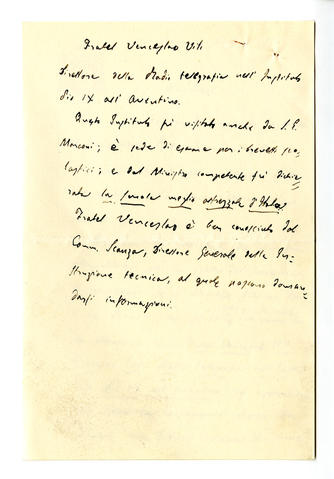 Fratel Venceslao Viti
Direttore della Radio telegrafia nell'Instituto
Pio IX all'Aventino.
Questo Instituto fu visitato anche da S. E.
Marconi; è sede di esame per i brevetti
; e dal Ministro competente fu dichia=
rata la scuola meglio attrezzata d'Italia.
Fratel Venceslao è ben conosciuto dal
Comm. Scanga, Direttore Generale della In=
struzione tecnica, al quale possono doman=
darsi informazioni.